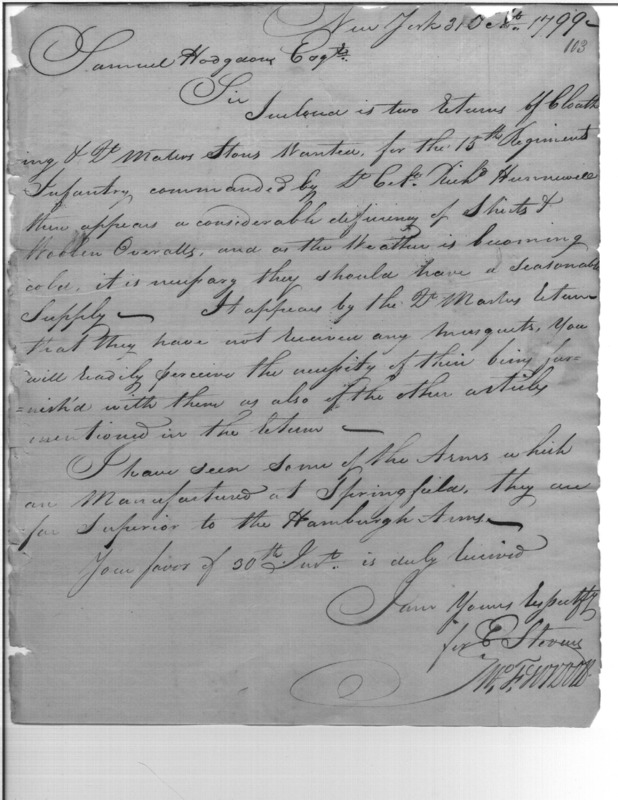 New York 31 Octr. 1799
113
Samuel Hodgdon Esqr.
Sir
Inclosed is two returns of Cloath
ing & Qr Masters Stores Wanted, for the 15th Regiment
Infantry, commanded by Lt Col. Richd Hunnewell
there appears a considerable deficiency of Shirts &
Woolen Overalls, and as the Weather is becoming
cold, it is necessary they should have a seasonable
Supply — It appears by the Qr Masters return
that they have not received any musquets, You
will readily perceive the necessity of their being fur=
=nish'd with them as also of the other articles
mentioned in the return —
I have seen some of the Arms which
are Manufactured at Springfield, they are
far Superior to the Hamburgh Arms —
Your favor of 30th Inst. is duly received
I am Yours respectfy
for E Stevens